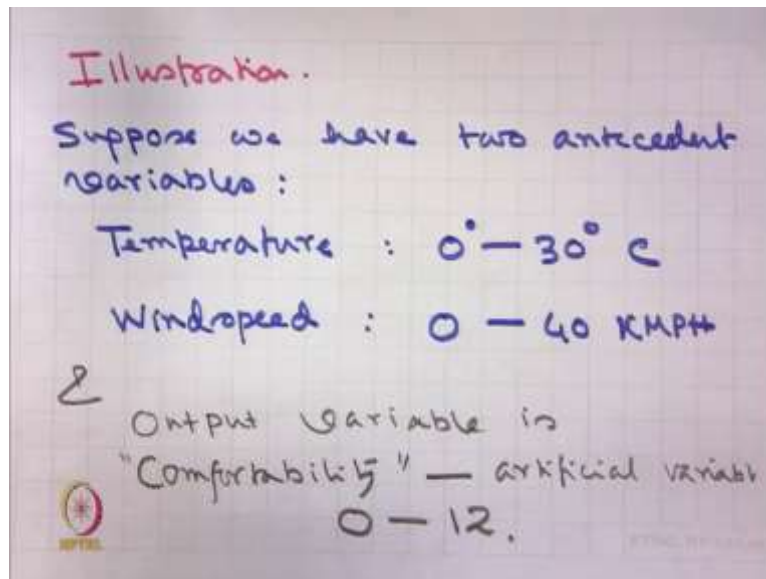 Illustration.
Suppose we have two antecedent
variables :
Temperature : 0° — 30° C
Windspeed : 0 — 40 KMPH
&
Output variable is
"Comfortability" — artificial variabl
0 — 12.
NPTEL